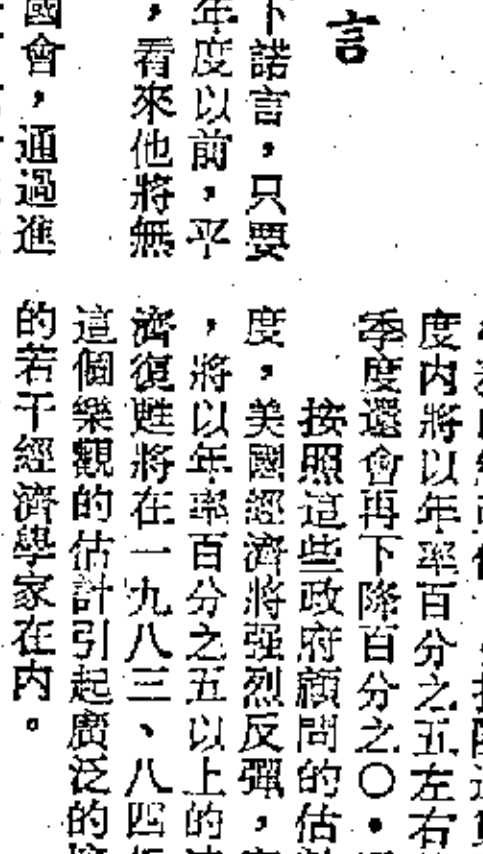 言
下諾言，只要
年度以前，平
，看來他將無
國會，通過進
度内將以年率百分之五左右
季度還會再下降百分之〇・
按照這些政府顧問的估
度，美國經濟將强烈反彈，
，將以年率百分之五以上的
濟復甦將在一九八三、八四
這個樂觀的估計引起廣泛的
的若干經濟學家在内。